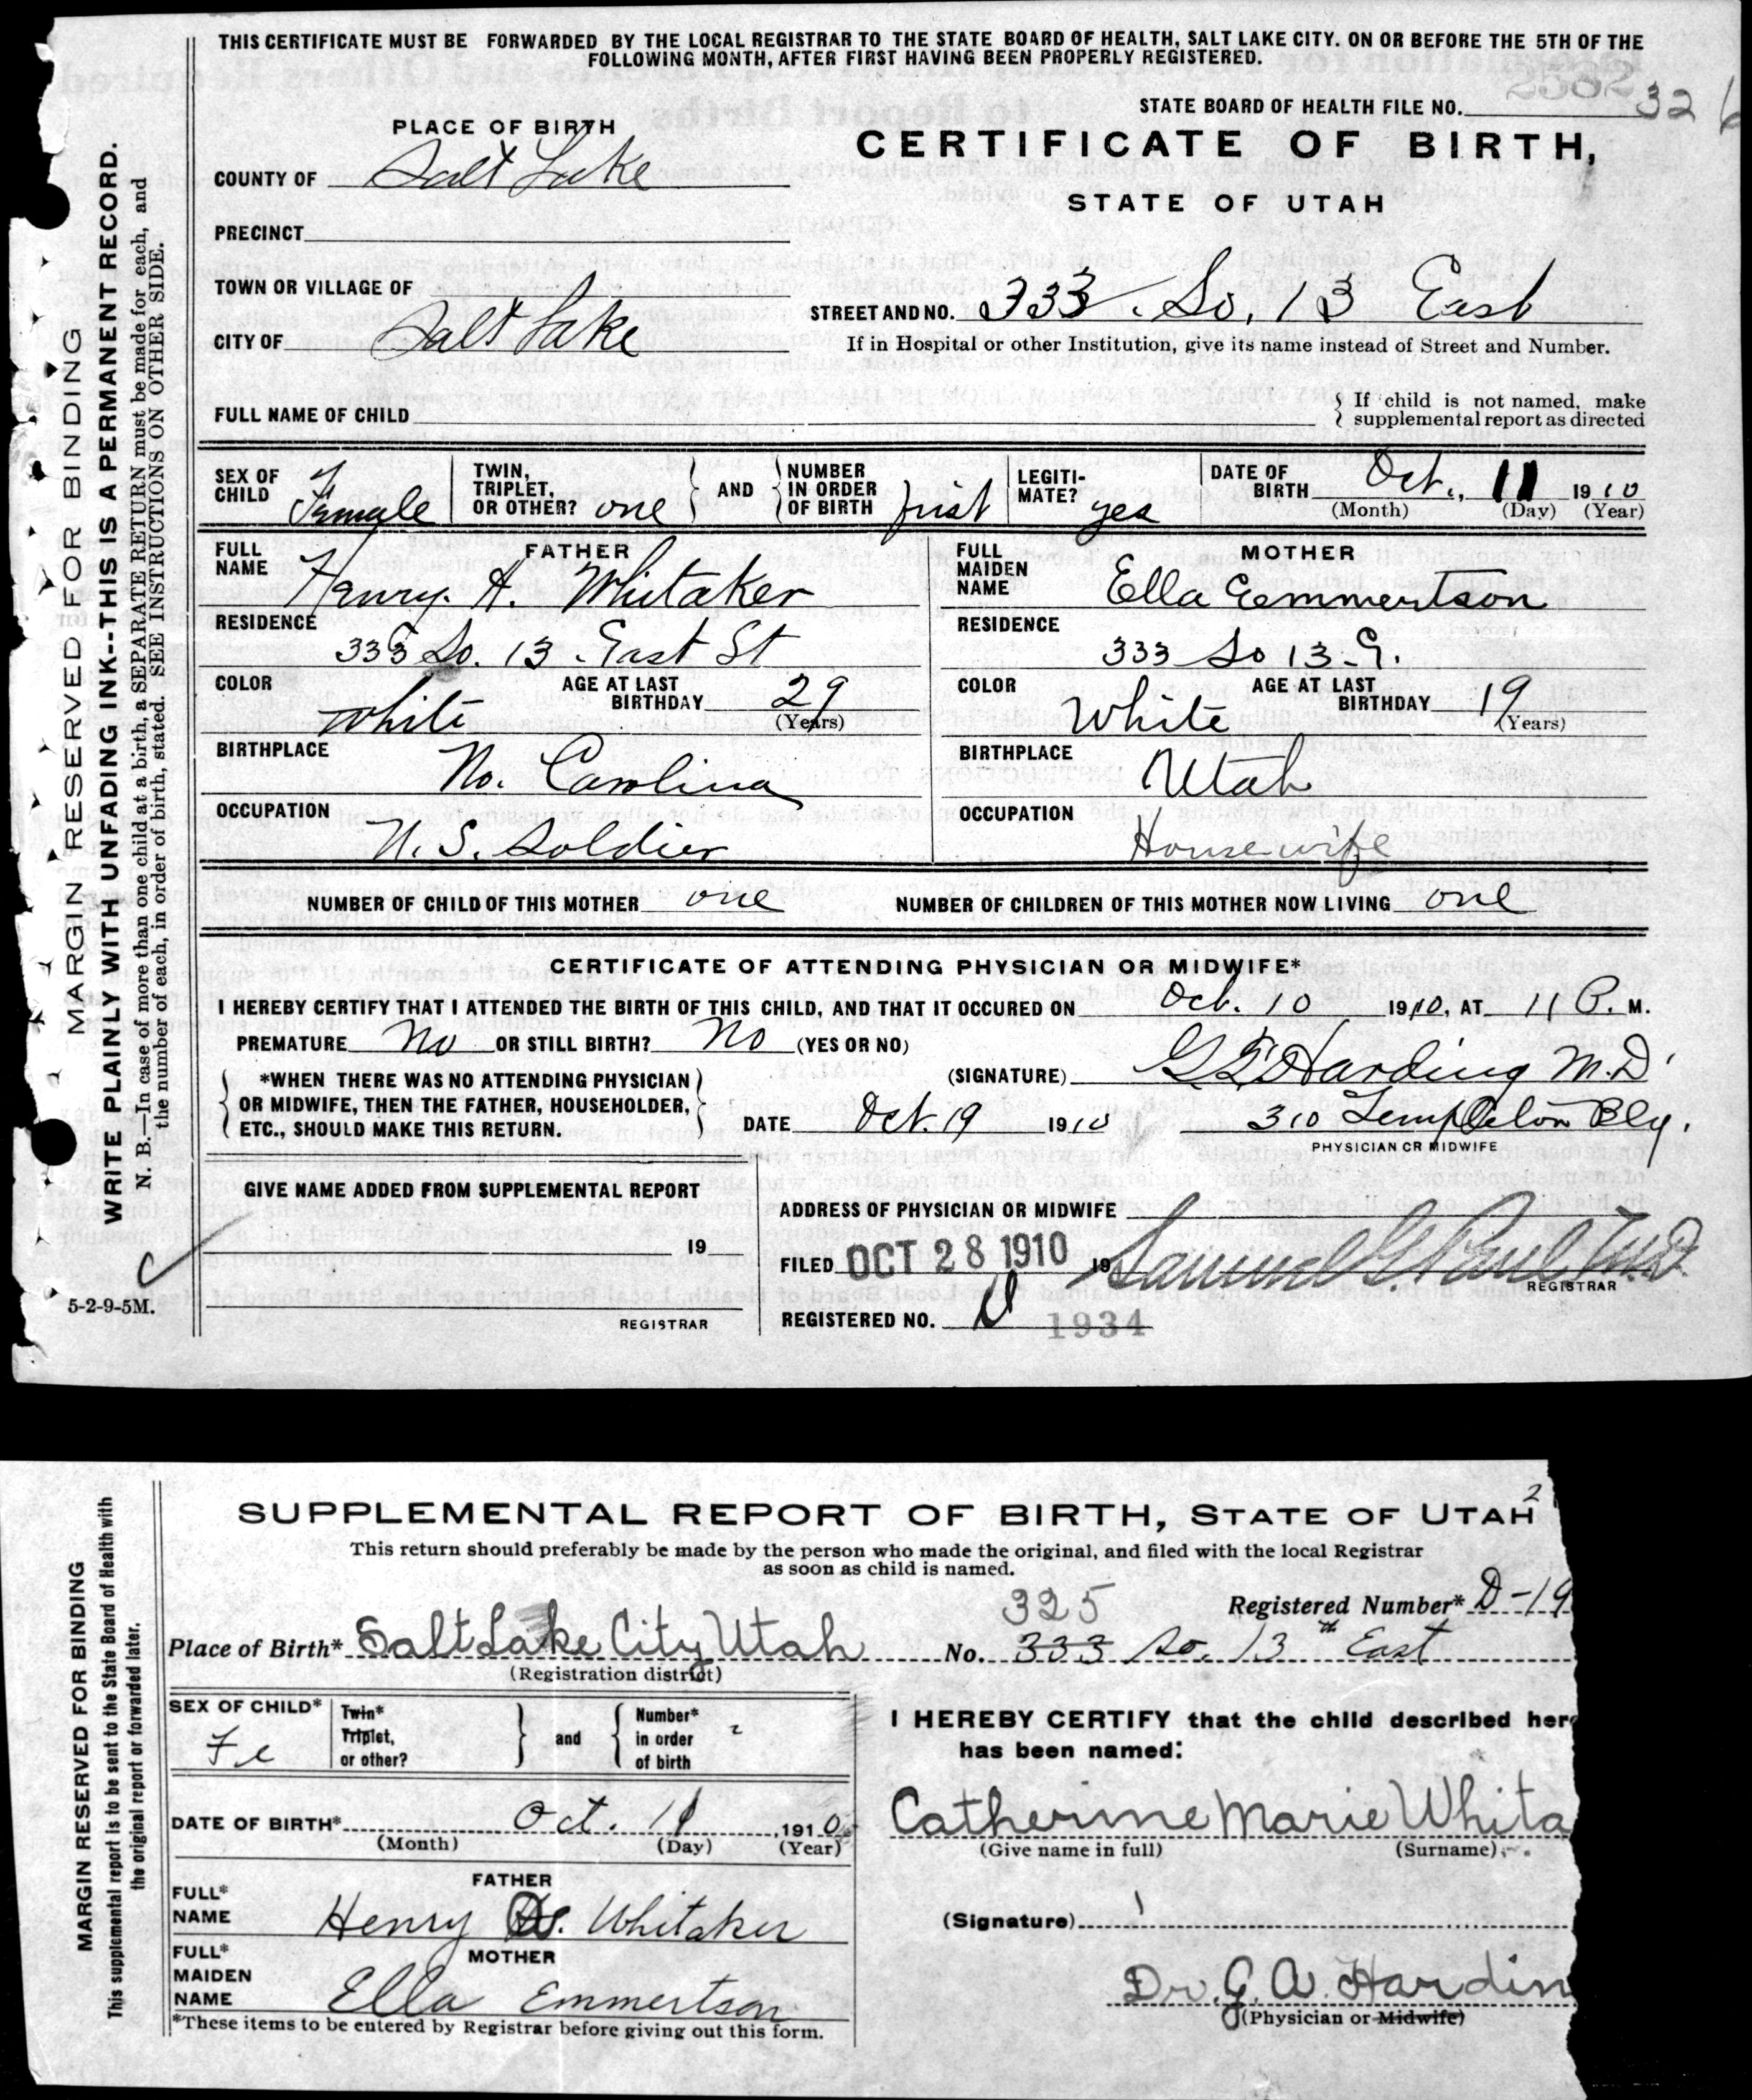 THIS CERTIFICATE MUST BE FORWARDED BY THE LOCAL REGISTRAR TO THE STATE BOARD OF HEALTH, SALT LAKE CITY. ON OR BEFORE THE 5TH OF THE
FOLLOWING MONTH, AFTER FIRST HAVING BEEN PROPERLY REGISTERED.
STATE BOARD OF HEALTH FILE NO. 2582 326
PLACE OF BIRTH
CERTIFICATE OF BIRTH,
COUNTY OF Salt Lake
STATE OF UTAH
PRECINCT
TOWN OR VILLAGE OF
STREET AND NO. 333 So. 13 East
CITY OF Salt Lake
If in Hospital or other Institution, give its name instead of Street and Number.
FULL NAME OF CHILD { If child is not named, make
supplemental report as directed
SEX OF CHILD Female
TWIN, TRIPLET, OR OTHER? one } AND { NUMBER IN ORDER OF BIRTH first
LEGITIMATE? yes
DATE OF BIRTH Oct., 11 1910
(Month) (Day) (Year)
FATHER
FULL NAME Henry A. Whitaker
RESIDENCE
333 So. 13 East St
COLOR White AGE AT LAST BIRTHDAY 29
(Years)
BIRTHPLACE
No. Carolina
OCCUPATION
U. S. Soldier
MOTHER
FULL MAIDEN NAME Ella Eemmertson
RESIDENCE
333 So 13 E.
COLOR White AGE AT LAST BIRTHDAY 19
(Years)
BIRTHPLACE
Utah
OCCUPATION
Housewife
NUMBER OF CHILD OF THIS MOTHER one NUMBER OF CHILDREN OF THIS MOTHER NOW LIVING one
CERTIFICATE OF ATTENDING PHYSICIAN OR MIDWIFE*
I HEREBY CERTIFY THAT I ATTENDED THE BIRTH OF THIS CHILD, AND THAT IT OCCURED ON Oct. 10 1910, AT 11 P. M.
PREMATURE No OR STILL BIRTH? No (YES OR NO)
(SIGNATURE) Harding M.D.
{ *WHEN THERE WAS NO ATTENDING PHYSICIAN
OR MIDWIFE, THEN THE FATHER, HOUSEHOLDER,
ETC., SHOULD MAKE THIS RETURN. }
DATE Oct. 19 1910 310 Templeton Blg.
PHYSICIAN OR MIDWIFE
GIVE NAME ADDED FROM SUPPLEMENTAL REPORT
19
REGISTRAR
ADDRESS OF PHYSICIAN OR MIDWIFE
FILED OCT 28 1910 19 Samuel G. Paul M.D.
REGISTRAR
REGISTERED NO. D 1934
MARGIN RESERVED FOR BINDING
WRITE PLAINLY WITH UNFADING INK--THIS IS A PERMANENT RECORD.
N. B.—In case of more than one child at a birth, a SEPARATE RETURN must be made for each, and
the number of each, in order of birth, stated. SEE INSTRUCTIONS ON OTHER SIDE.
5-2-9-5M.
SUPPLEMENTAL REPORT OF BIRTH, STATE OF UTAH 2
This return should preferably be made by the person who made the original, and filed with the local Registrar
as soon as child is named.
Registered Number* D-19
325
Place of Birth* Salt Lake City Utah No. 333 So. 13th East
(Registration district)
SEX OF CHILD* Fe
Twin* Triplet, or other? } and { Number* in order of birth 2
DATE OF BIRTH* Oct. 11, 1910
(Month) (Day) (Year)
FATHER
FULL* NAME Henry Whitaker
MOTHER
FULL* MAIDEN NAME Ella Emmertson
*These items to be entered by Registrar before giving out this form.
I HEREBY CERTIFY that the child described here
has been named:
Catherine Marie Whita
(Give name in full) (Surname)
(Signature)
Dr. G. A. Hardin
(Physician or Midwife)
MARGIN RESERVED FOR BINDING
This supplemental report is to be sent to the State Board of Health with
the original report or forwarded later.